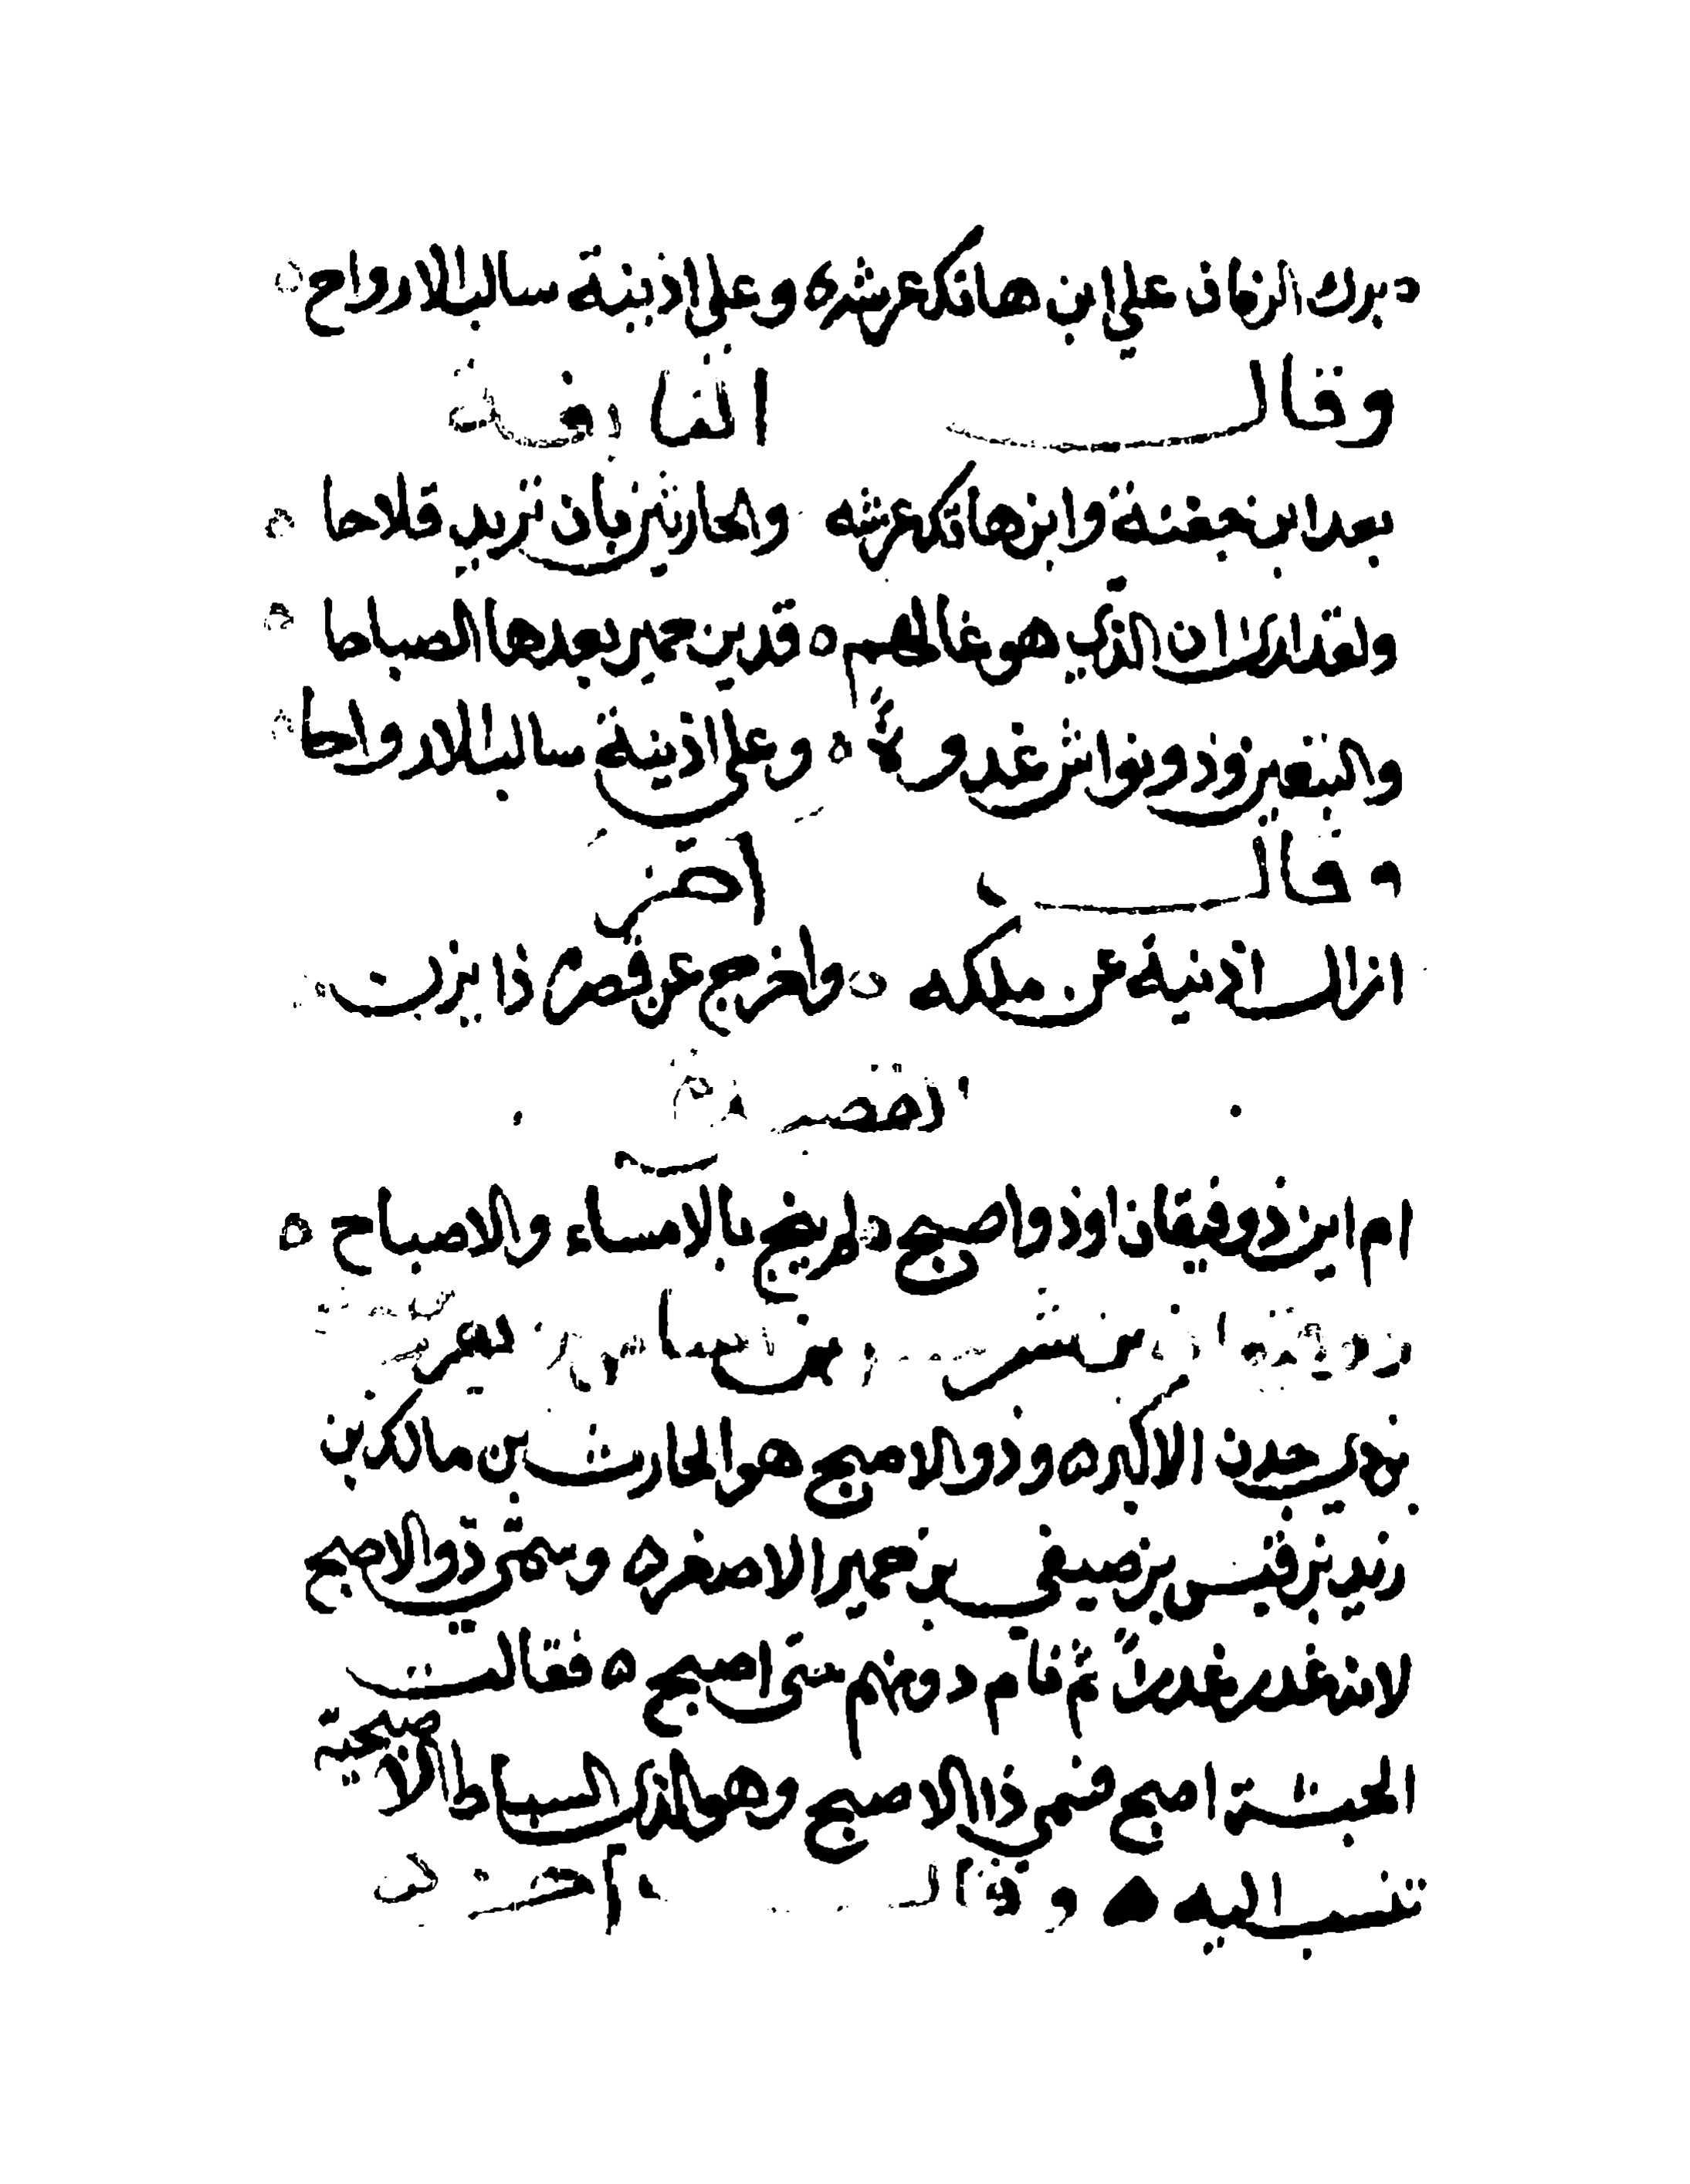 برك الزمان على ابن هاتك عرشه وعلى اذينة سالب الارواح ه
وقال النابغة
بعد ابن جفنة وابن هاتك عرشه والحارثين بان تريد فلاحا ه
ولقد ارى ان الذي هو غالهم ه قد بن حمير بعدها الصباحا ه
والتبعين وذو نواش غدوة ه وعلى اذينة سالب الارواحا ه
وقال اخر
ازال اذنية عن ملكه ه واخرج عن قصره ذا يزن
القصيدة
ام اين ذو فيقان او ذو اصبح ه لم ينج بالامساء والاصباح ه
بن شر بن
بن ذي جدن الاكبر ه وذو الاصبح هو الحارث بن مالك بن
زيد بن قيس بن صيفي بن حمير الاصغر ه وسمي ذو الاصبح
لانه غدر غدراً ثم قام دونهم حتى اصبح ه فقالت
الحبشة اصبح فسمي ذا الاصبح وهو الذي السياط الاصبحية
تنسب اليه ه وقال اخر